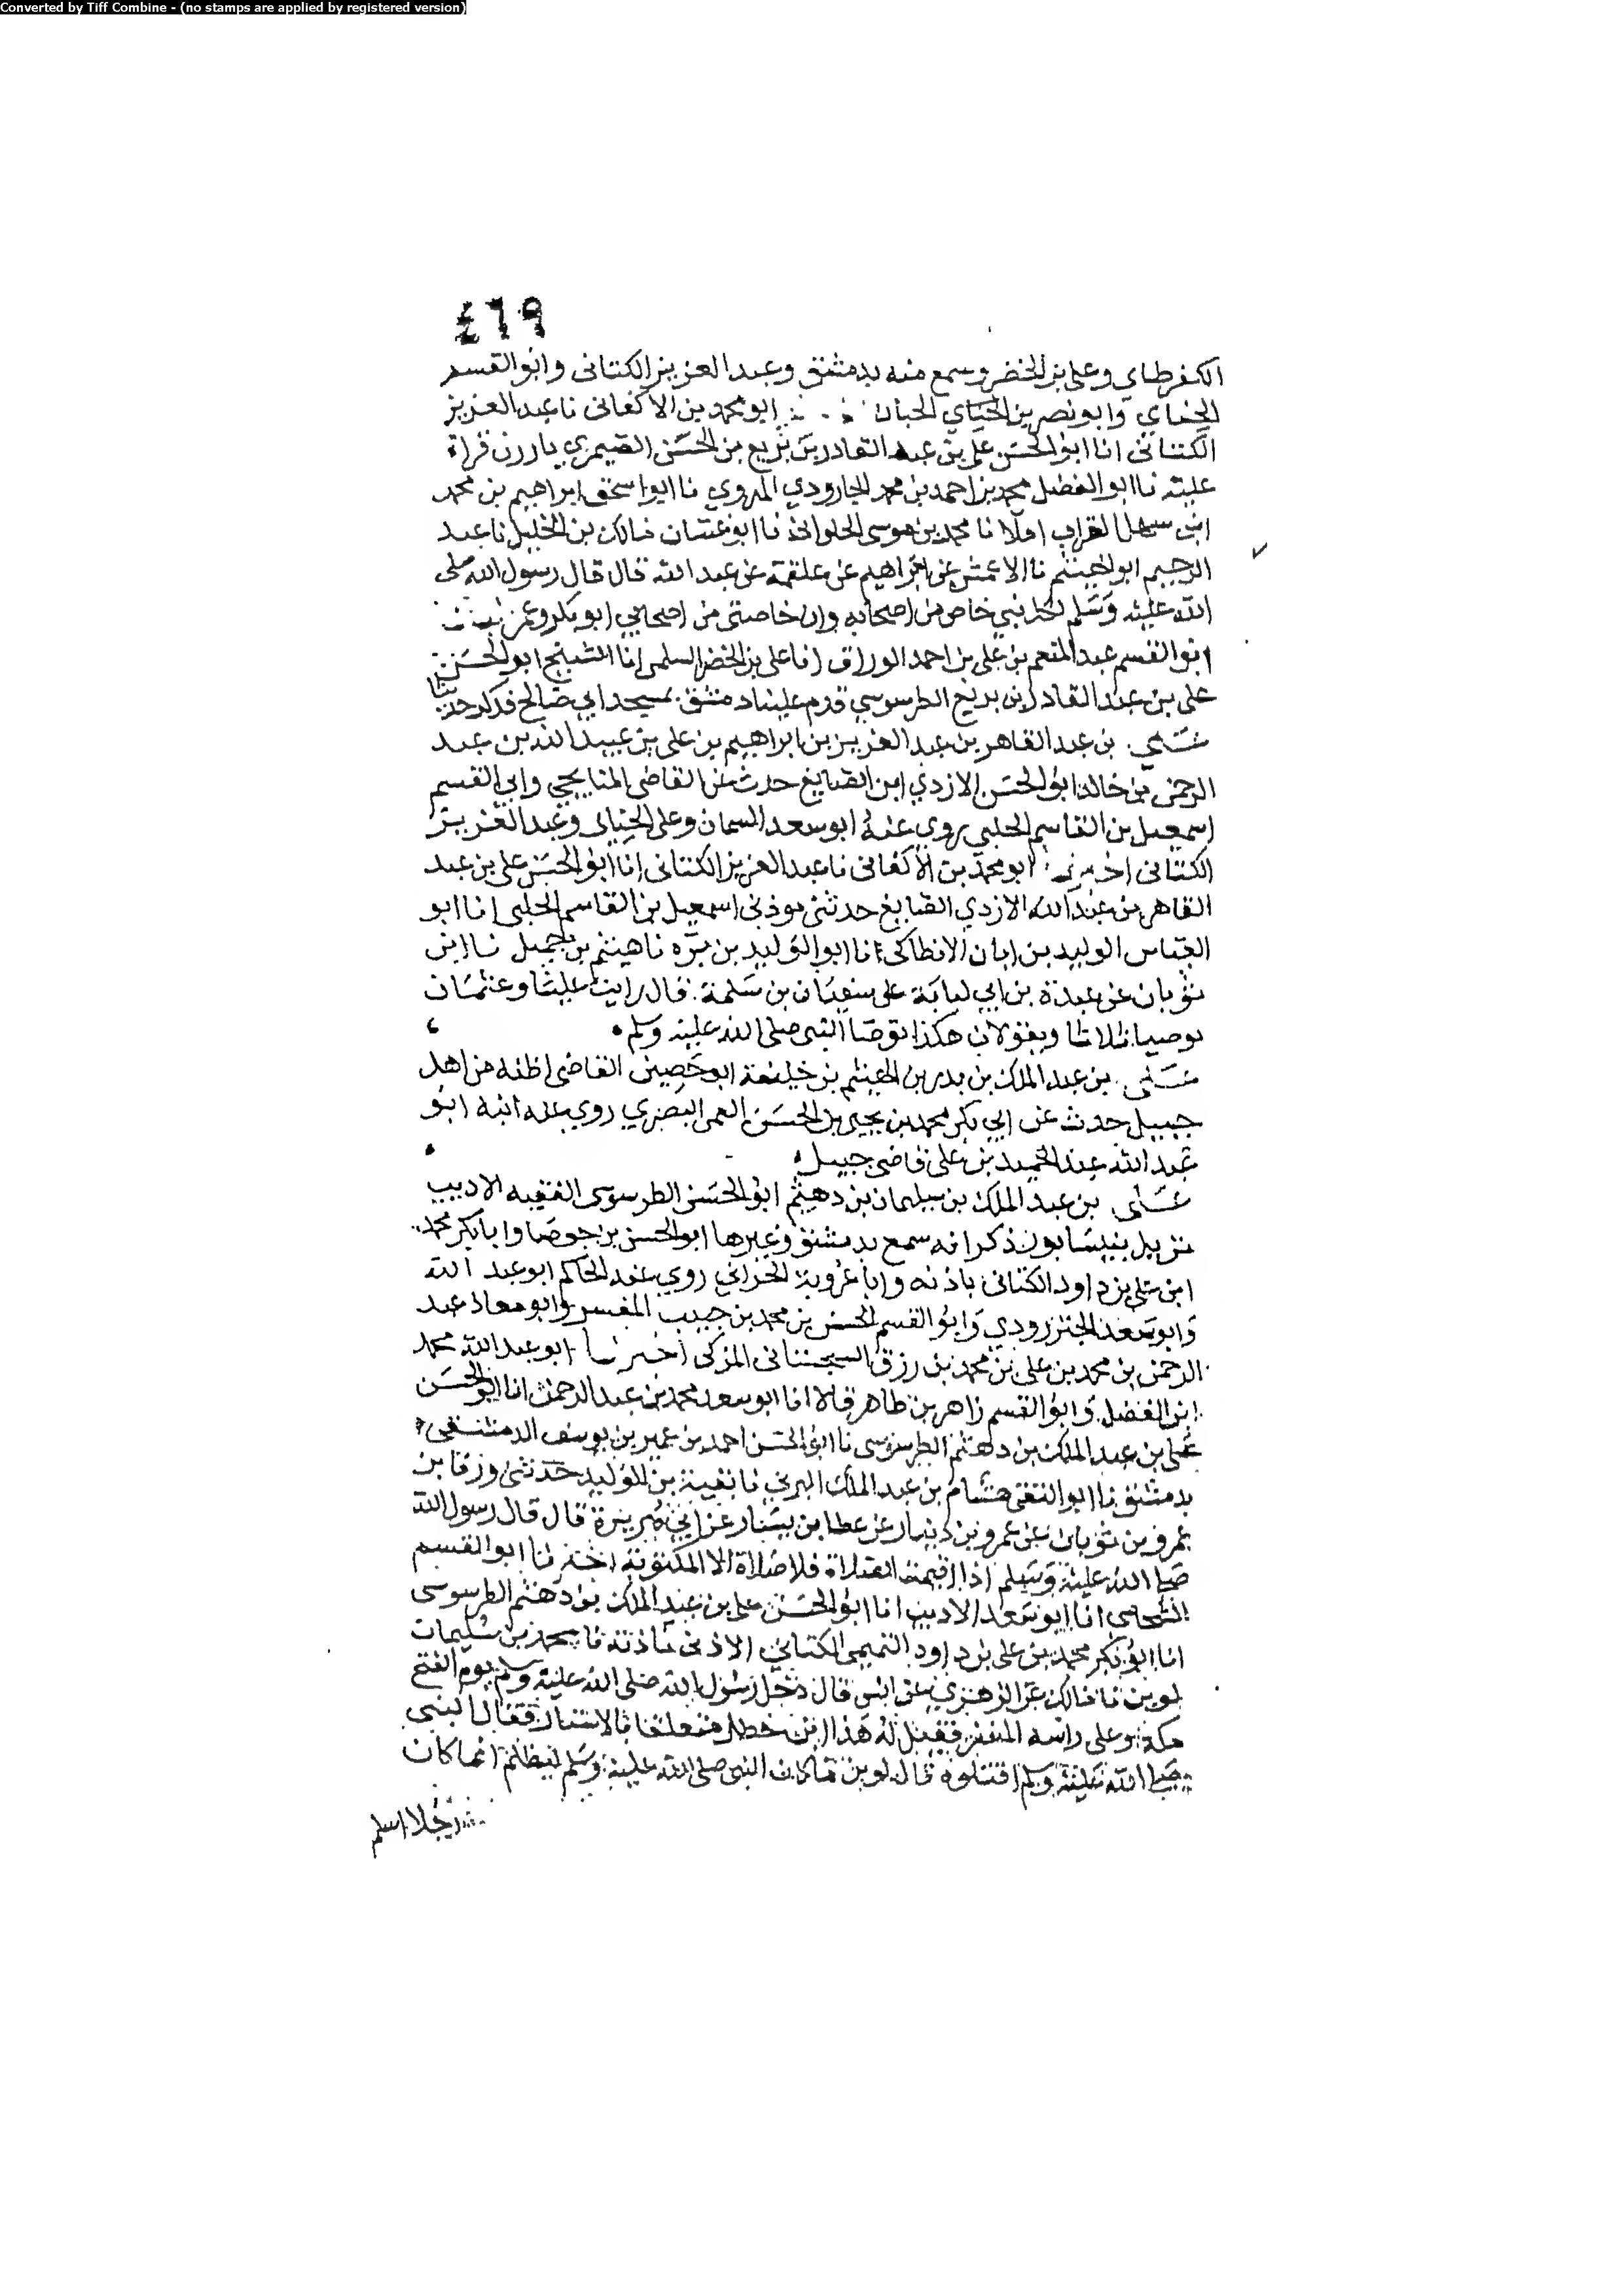 Converted by Tiff Combine - (no stamps are applied by registered version)
٤٦٩
الكفرطابي وعلي بن الخضر وسمع منه بدمشق وعبد العزيز الكتاني وابو القسم
الحناي وابو نصر بن الجبان ابو محمد بن الاكفاني نا عبد العزيز
الكتاني انا ابو الحسن علي بن عبد القادر بن بزيع بن الحسن قراة
عليه نا ابو الفضل محمد بن احمد بن محمد الجارودي الهروي نا ابوا سحق ابراهيم بن محمد
ابن سهل القراب املا نا محمد بن موسى الحلواني نا ابو غسان مالك بن الخليل نا عبد
الرحيم ابو الهيثم نا الاعمش عن ابراهيم عن علقمة عن عبد الله قال قال رسول الله صلى
الله عليه وسلم لكل نبي خاص من اصحابه وان خاصتي من اصحابي ابو بكر وعمر
ابو القسم عبد المنعم بن علي بن احمد الوراق انا علي بن الخضر السلمي انا الشيخ ابو الحسن
علي بن عبد القادر بن بزيع الطرسوسي قدم علينا دمشق بمسجد ابي صالح فذكر حديثا
علي بن عبد القاهر بن عبد العزيز بن ابراهيم بن علي بن عبيد الله بن عبد
الرحمن بن خالد ابو الحسن الازدي ابن الصايغ حدث عن القاضي الميانجي وابي القسم
اسمعيل بن القاسم الحلبي روي عنه ابو سعد السمان وعلي الحناي وعبد العزيز
الكتاني اخبرنا ابو محمد بن الاكفاني نا عبد العزيز الكتاني انا ابو الحسن علي بن عبد
القاهر بن عبد الله الازدي الصايغ حدثني اسمعيل بن القاسم الحلبي انا ابو
العباس الوليد بن ابان الانطاكي انا ابو الوليد بن برد نا هيثم بن جميل نا ابن
ثوبان عن عبدة بن ابي لبابة على سفيان بن سلمة قال رايت عليا وعثمان
توضيا ثلاثا ويقولان هكذا توضا النبي صلى الله عليه وسلم
علي بن عبد الملك بن بدر بن الهيثم بن خليفة ابو حصين القاضي اظنه من اهل
جبيل حدث عن ابي بكر محمد بن يحيى بن الحسن العمي البصري روي عنه ابنه ابو
عبد الله عبد الحميد بن علي قاضي جبيل
علي بن عبد الملك بن سليمان بن دهثم ابو الحسن الطرسوسي الفقيه الاديب
نزيل نيسابور ذكر انه سمع بدمشق وغيرها ابو الحسن بن جوصا وابا بكر محمد
ابن علي بن داود الكتاني باذنه وابا عروبة الحراني روي عنه الحاكم ابو عبد الله
وابو سعد الجنزرودي وابو القسم الحسن بن محمد بن حبيب المفسر وابو معاذ عبد
الرحمن بن محمد بن علي بن محمد بن رزق السجستاني المزكي اخبرنا ابو عبد الله محمد
ابن الفضل وابو القسم زاهر بن طاهر قالا انا ابو سعد محمد بن عبد الرحمن انا ابو الحسن
علي بن عبد الملك بن دهثم الطرسوسي نا ابو الحسن احمد بن عمير بن يوسف الدمشقي
بدمشق نا ابو التقي هشام بن عبد الملك اليزني نا بقية بن الوليد حدثني ورقا بن
عمرو بن ثوبان عن عمرو بن دينار عن عطا بن يسار عن ابي هريرة قال قال رسول الله
صلى الله عليه وسلم اذا اقيمت الصلاة فلا صلاة الا المكتوبة اخبرنا ابو القسم
الشحامي انا ابو سعد الاديب انا ابو الحسن علي بن عبد الملك بن دهثم الطرسوسي
انا ابو بكر محمد بن علي بن داود التميمي الكتاني الاذني باذنه نا محمد بن سليمان
لوين نا مالك عن الزهري عن انس قال دخل رسول الله صلى الله عليه وسلم يوم الفتح
مكة وعلى راسه المغفر فقيل له هذا ابن خطل متعلقا بالاستار فقال النبي
صلى الله عليه وسلم اقتلوه قال لوين ما كان النبي صلى الله عليه وسلم ليظلم انما كان
رجلا اسلم